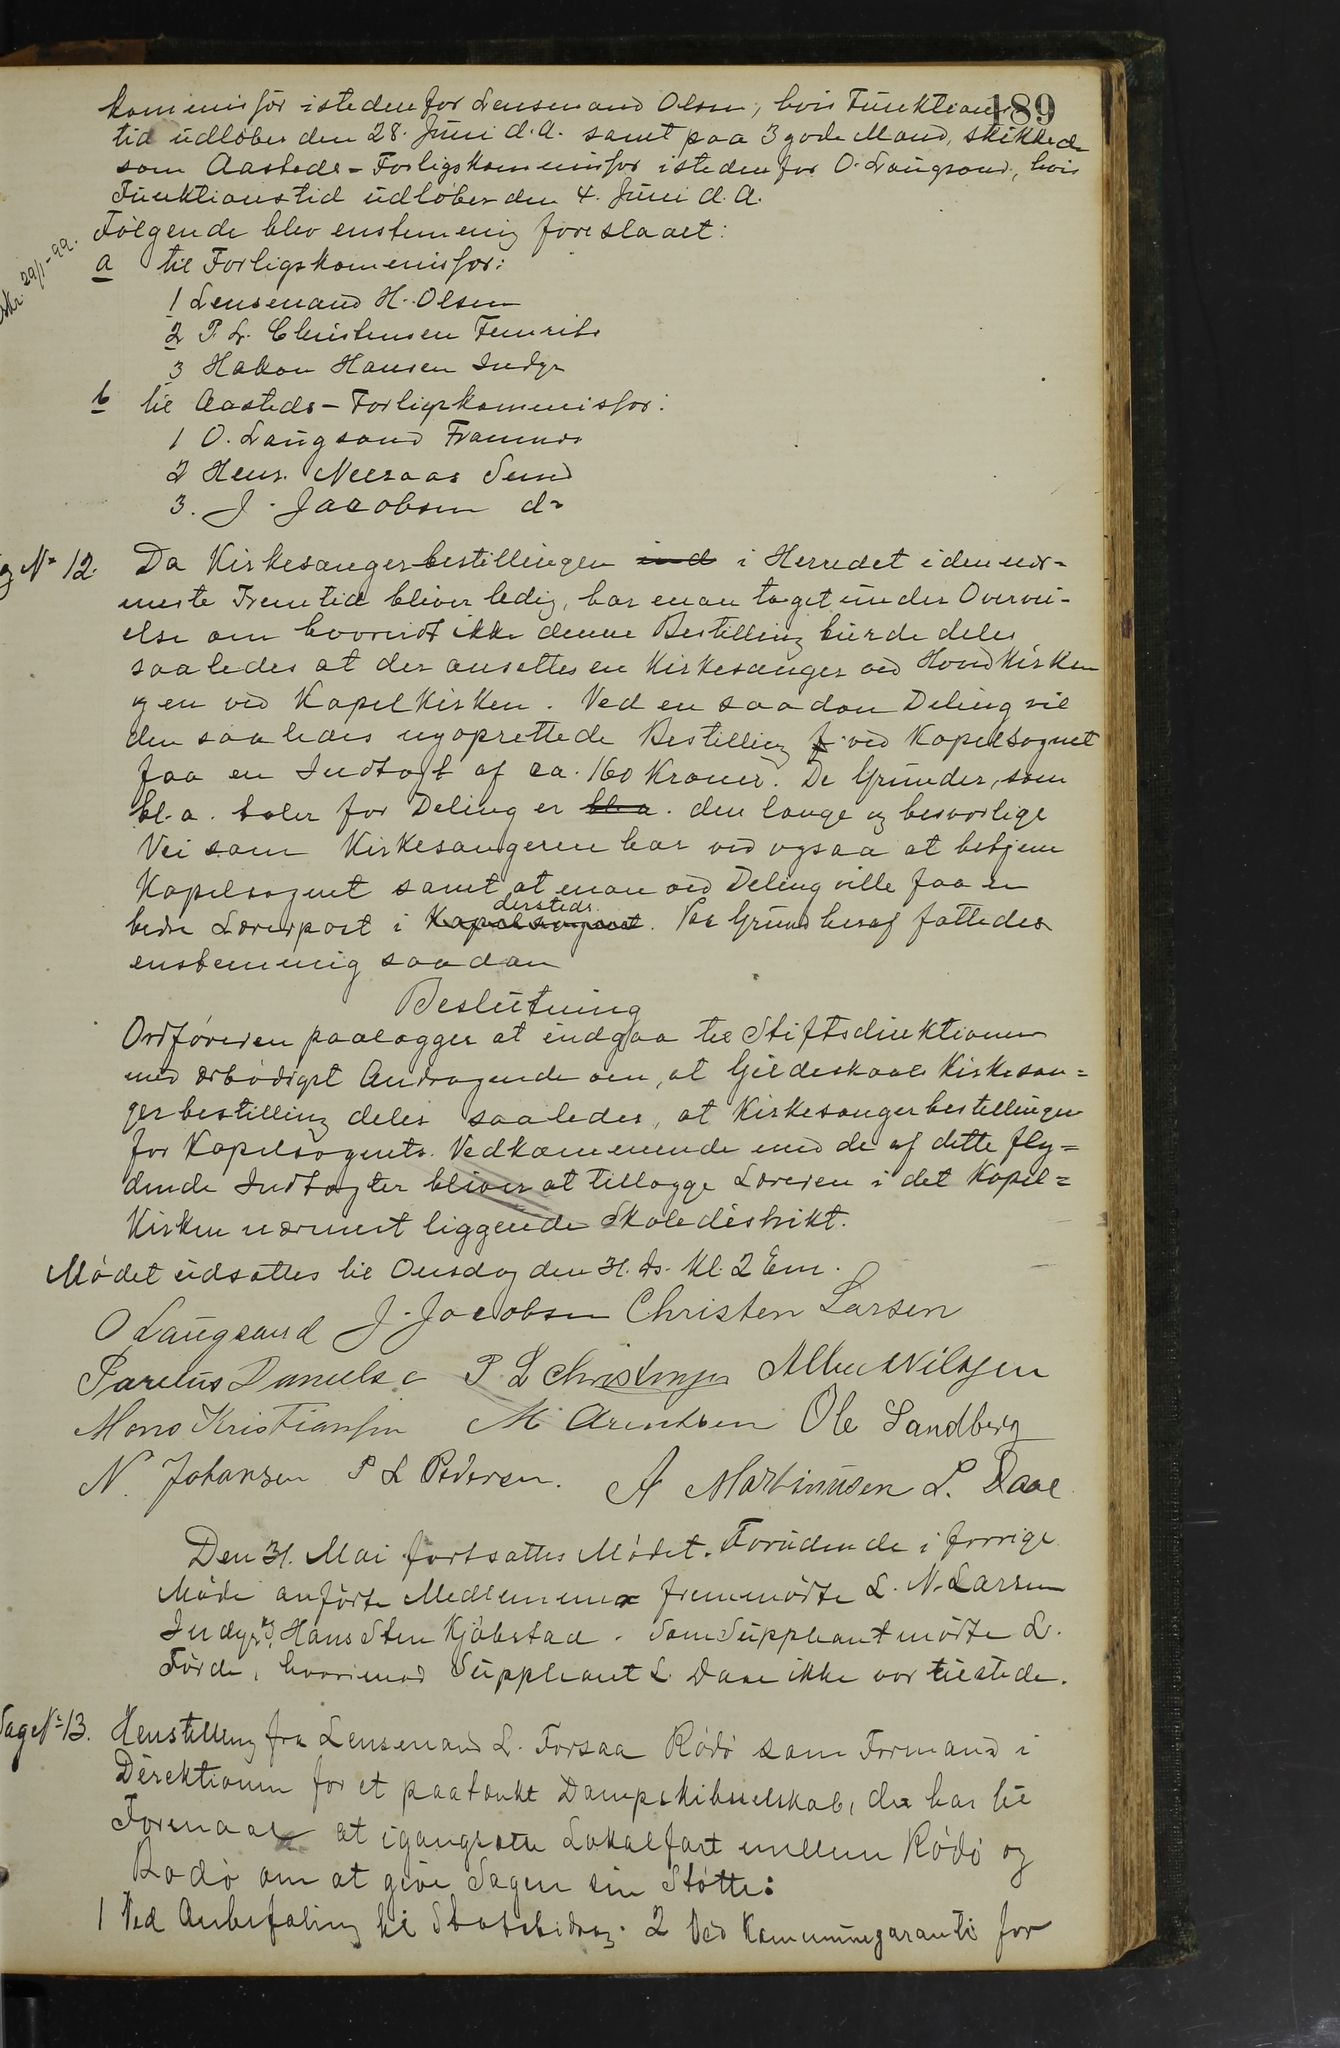 189
kommissær istedenfor Lensmand Olsen, hvis Funktions-
tid udløber den 28. Juni d.A. samt paa 3 gode Mænd, skikkede
som Aasteds-Forligskommissær istedenfor O. Laugsand, hvis
Funktionstid udløber den 4. Juni d.A.
Følgende blev enstemmig foreslaaet:
29/1-99.
a til Forligskommissær:
1 Lensmand H. Olsen
2 P. L. Christensen Femris
3 Hakon Hansen Indyr
b til Aasteds-Forligskommissær:
1 O. Laugsand
2 Hens. Sund
3. J. Jacobsen do
Sag No 12. Da Kirkesangerbestillingen ind i Herredet i den nær-
meste Fremtid bliver ledig, har man taget under Overvei-
else om hvorvidt ikke denne Bestilling burde deles
saaledes at der ansættes en Kirkesanger ved Hovedkirken
og en ved Kapelkirken. Ved en saadan Deling vil
den saaledes nyoprettede Bestilling f ved Kapelsognet
faa en Indtægt af ca. 160 Kroner. De Grunder, som
bl.a. taler for Deling er bl.a. den lange og besværlige
Vei som Kirkesangeren har ved ogsaa at betjene
Kapelsognet samt at man ved Deling ville faa en
dersteds
bedre Lærerpost i Kapelsognet. Paa Grund heraf fattedes
enstemmig saadan
Beslutning
Ordføreren paalægges at indgaa til Stiftsdirektionen
med ærbødigst Andragende om, at Gildeskaals Kirkesan=
gerbestilling deles saaledes, at Kirkesangerbestillingen
for Kapelsognets Vedkommende med de af dette fly=
dende Indtægter bliver at tillægge Læreren i det Kapel=
Kirken nærmest liggende Skoledistrikt.
Mødet udsattes til Onsdag den 31. ds. Kl. 2 Em.
O Laugsand J. Jacobsen Christen Larsen
Parelius Danielsen P L Christensen Albert Nilsen
Mons Kristiansen M Arentsen Ole Sandberg
N. Johansen P L Pedersen. A Martinusen L. Daae
Den 31. Mai fortsattes Mødet. Foruden de i forrige
Møde anførte Medlemmer fremmødte L. N. Larsen
Indyr og Hans Sten Kjøbstad. Som Suppleant mødte L.
Førde, hvorimod Suppleant L Daae ikke var tilstede.
Sag No 13. Henstilling fra Lensmand L. Forsaa Rødø som Formand i
Direktionen for et paatænkt Dampskibsselskab, der har til
Formaal at igangsætte Lokalfart mellem Rødø og
Bodø om at give Sagen sin Støtte:
1 Ved Anbefaling til Statsbidrag. 2 Ved Kommunegaranti for